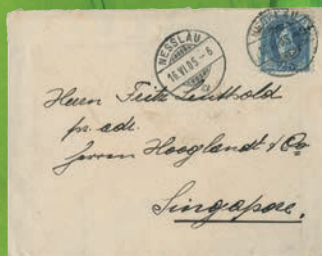 NESSLAU
16.VI.05.-6
Herrn Fritz Leuthold
pr. adr.
Herren Hooglandt & Co
Singapore.